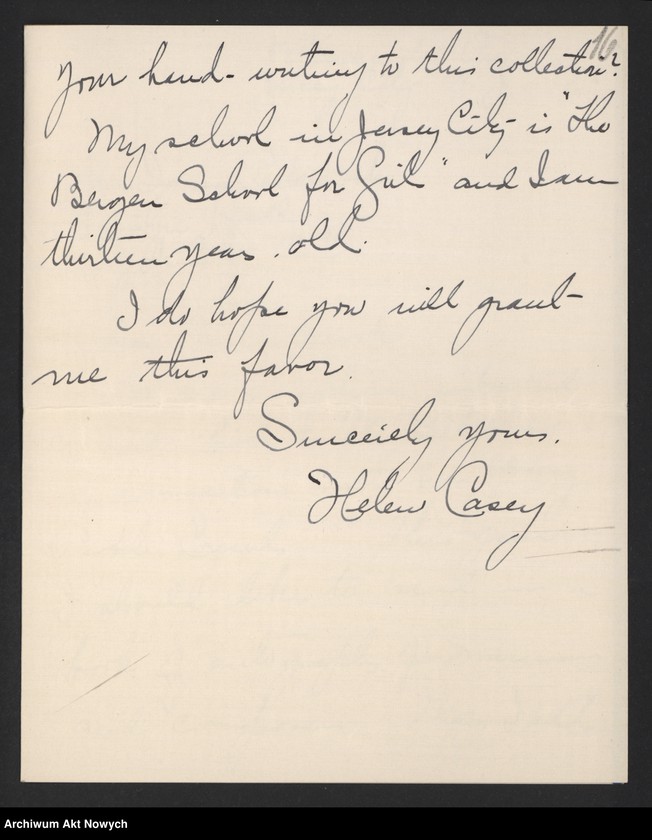 16
your hand-writing to this collection?
My school in Jersey City is "The
Bergen School for Girls" and I am
thirteen years old.
I do hope you will grant
me this favor.
Sincerely yours,
Helen Casey
Archiwum Akt Nowych